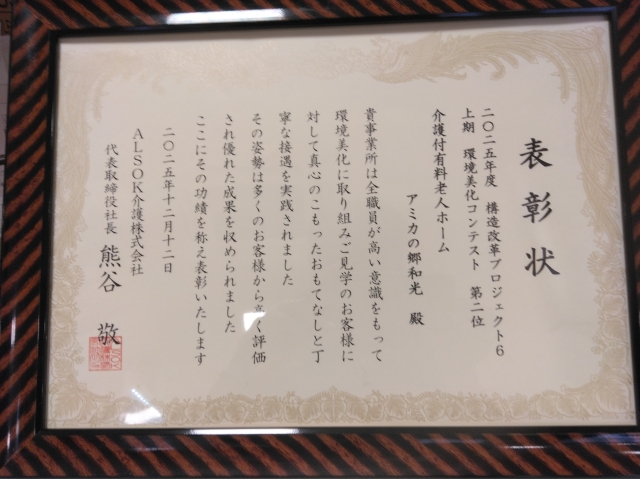 表彰状
二〇二五年度 構造改革プロジェクト6
上期 環境美化コンテスト 第二位
介護付有料老人ホーム
アミカの郷和光 殿
貴事業所は全職員が高い意識をもって
環境美化に取り組みご見学のお客様に
対して真心のこもったおもてなしと丁
寧な接遇を実践されました
その姿勢は多くのお客様から高く評価
され優れた成果を収められました
ここにその功績を称え表彰いたします
二〇二五年十二月十二日
ALSOK介護株式会社
代表取締役社長 熊谷 敬